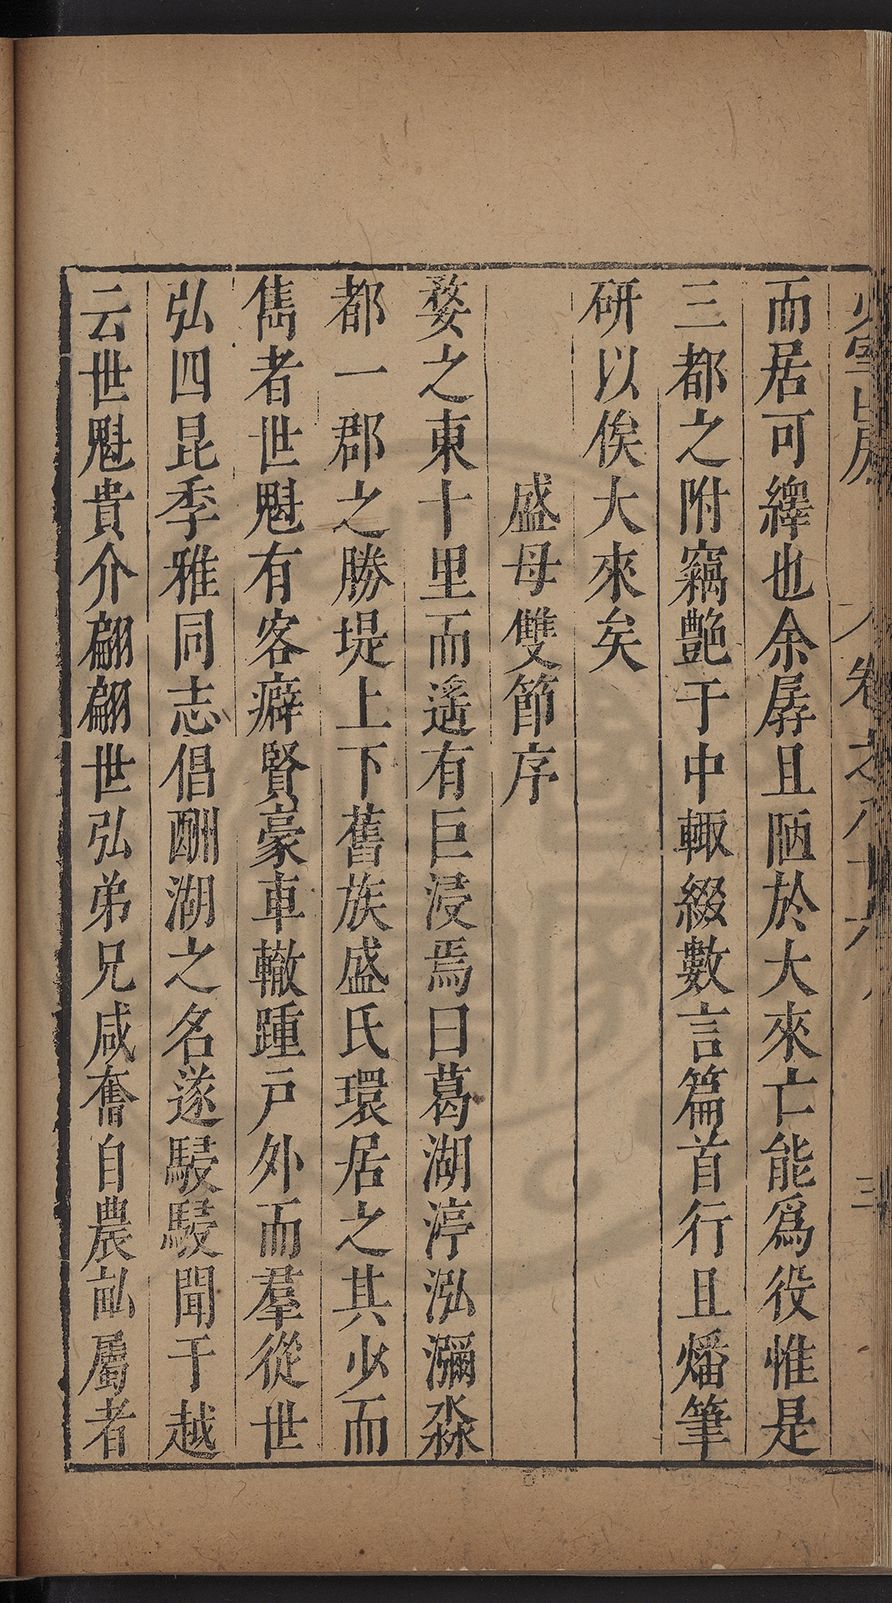 少室山房　卷之八十六　三
而居可繹也余孱且陋於大來亡能爲役惟是
三都之附竊艷于中輙綴數言篇首行且燔筆
研以俟大來矣
盛母雙節序
婺之東十里而遙有巨浸焉曰葛湖渟泓瀰淼
都一郡之勝堤上下舊族盛氏環居之其少而
雋者世魁有客癖賢豪車轍踵戶外而羣從世
弘四昆季雅同志倡酬湖之名遂駸駸聞于越
云世魁貴介翩翩世弘弟兄咸奮自農畝屬者